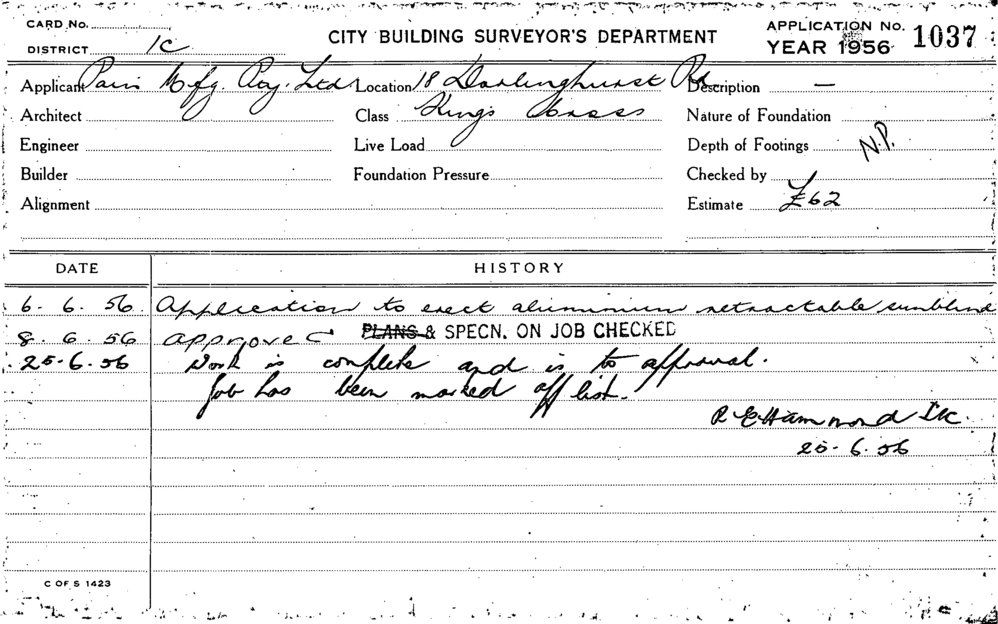 CARD No.
DISTRICT 1C
CITY BUILDING SURVEYOR'S DEPARTMENT
APPLICATION No. 1037
YEAR 1956
Applicant Pain Mfg. Pty. Ltd.
Location 18 Darlinghurst Rd
Description —
Architect
Class Kings Cross
Nature of Foundation
Engineer
Live Load
Depth of Footings N.P.
Builder
Foundation Pressure
Checked by
Alignment
Estimate £62
DATE HISTORY
6. 6. 56 Application to erect aluminium retractable sunblind
8. 6. 56 approved PLANS & SPECN. ON JOB CHECKED
25-6-56 Work is complete and is to approval.
Job has been marked off list.
R E Hammond 1C
25-6-56
C OF S 1423